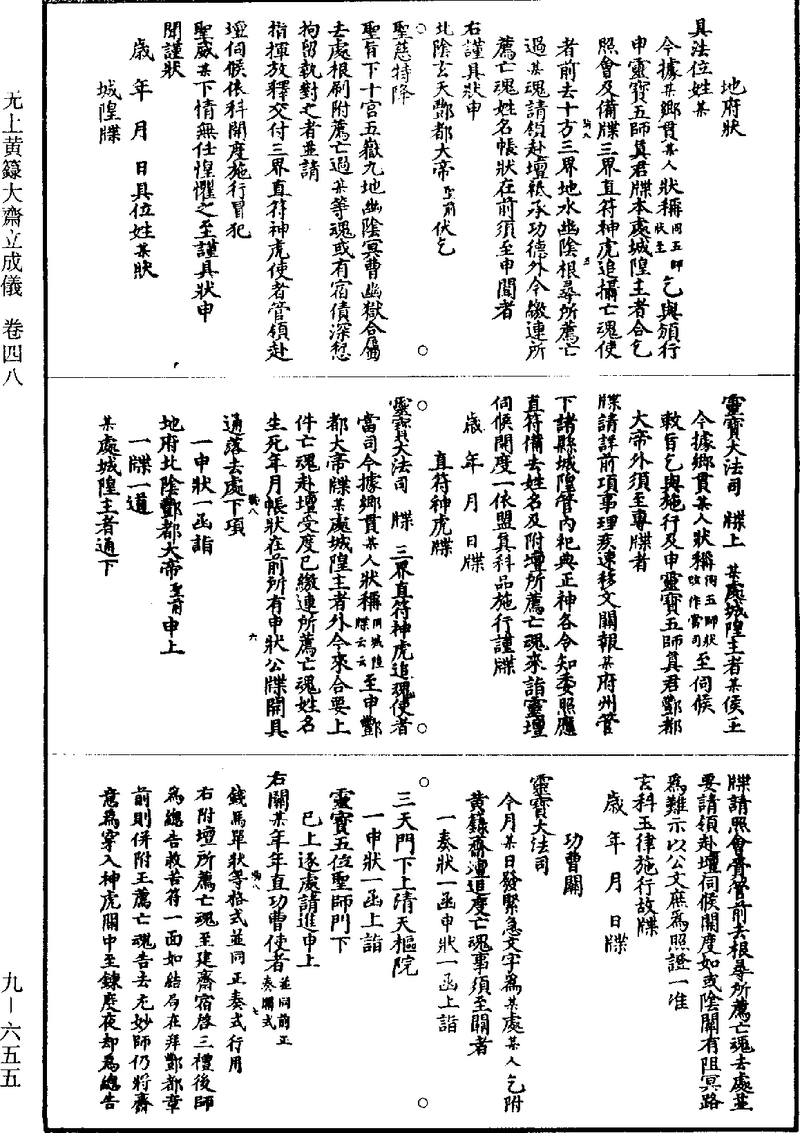 地府狀
具法位姓某
今據某鄉貫某人狀稱同五師狀至乞與頒行
申靈寶五師真君牒本處城隍主者合乞
照會及備牒三界直符神虎追攝亡魂使
者前去十方三界地水幽陰根尋所薦亡
過某魂請領赴壇祗承功德外今繳連所
薦亡魂姓名帳狀在前須至申聞者
右謹具狀申
北陰玄天酆都大帝聖前伏乞
聖慈特降
聖旨下十宮五嶽九地幽陰冥曹幽獄合屬
去處根刷附薦亡過某等魂或有宿債深愆
拘留執對之者並請
指揮放釋交付三界直符神虎使者管領赴
壇伺候依科開度施行冒犯
聖威某下情無任惶懼之至謹具狀申
聞謹狀
歲 年 月 日具位姓某狀
城隍牒
靈寶大法司 牒上 某處城隍主者某侯王
今據鄉貫某人狀稱同五師狀改作當司至伺候
敕旨乞與施行及申靈寶五師真君酆都
大帝外須至專牒者
牒請詳前項事理疾速移文關報某府州管
下諸縣城隍管內祀典正神各令知委照應
直符備去姓名及附壇所薦亡魂來詣靈壇
伺候開度一依盟真科品施行謹牒
歲 年 月 日牒
直符神虎牒
靈寶大法司 牒 三界直符神虎追魂使者
當司今據鄉貫某人狀稱同城隍牒云云至申酆
都大帝牒某處城隍主者外今來合要上
件亡魂赴壇受度已繳連所薦亡魂姓名
生死年月帳狀在前所有申狀公牒開具
通落去處下項
一申狀一函詣
地府北陰酆都大帝聖前申上
一牒一道
某處城隍主者通下
牒請照會齎管前去根尋所薦亡魂去處並
要請領赴壇伺候開度如或陰關有阻冥路
為難示以公文庶為照證一准
玄科玉律施行故牒
歲 年 月 日牒
功曹關
靈寶大法司
今月某日發緊急文字為某處某人乞附
黃籙齋壇追度亡魂事須至關者
一奏狀一函申狀一函上詣
三天門下上清天樞院
一申狀一函上詣
靈寶五位聖師門下
已上逐處請進申上
右關某年年直功曹使者並同前正奏關式
錢馬單狀等格式並同正奏式行用
右附壇所薦亡魂至建齋宿啓三禮後師
為總告救苦符一面如結局在拜酆都章
前則併附王薦亡魂告去无妙師仍將齋
意為穿入神虎關中至鍊度夜却為總告
无上黃籙大齋立成儀 卷四八
九－六五五